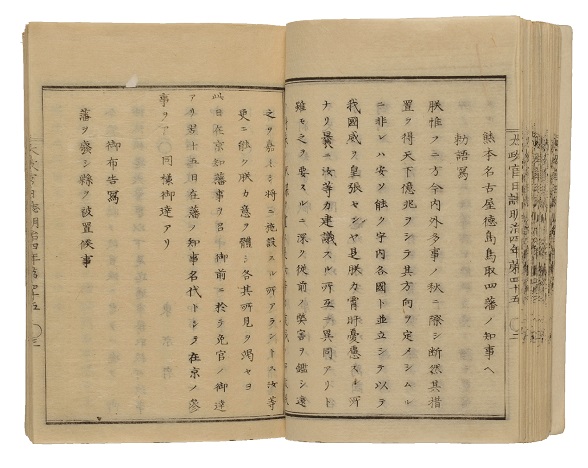 太政官日誌明治四年第四十五 〇二
熊本名古屋徳島鳥取四藩ノ知事ヘ
勅語寫
朕惟フニ方今内外多事ノ秋ニ際シ断然其措
置ヲ得天下億兆ヲシテ其方向ヲ定メシムル
ニ非レハ安ソ能ク宇内各國ト並立シテ以テ
我國威ヲ皇張センヤ是朕カ宵旰憂慮スル所
ナリ曩ニ汝等カ建議スル所互ニ異同アリト
雖モ之ヲ要スルニ深ク従前ノ弊害ヲ鑑シ遠
之ヲ嘉ミシ将ニ施設スル所アラントス汝等
更ニ能ク朕カ意ヲ體シ各其所見ヲ竭セヨ
此日在京知事ヲ召シ 御前ニ於テ免官ノ御達
アリ翌十五日在藩ノ知事名代トシテ在京ノ参
事ヲ 同様御達アリ
御布告寫
藩ヲ廢シ縣ヲ被置候事
太政官日誌明治四年第四十五 〇三